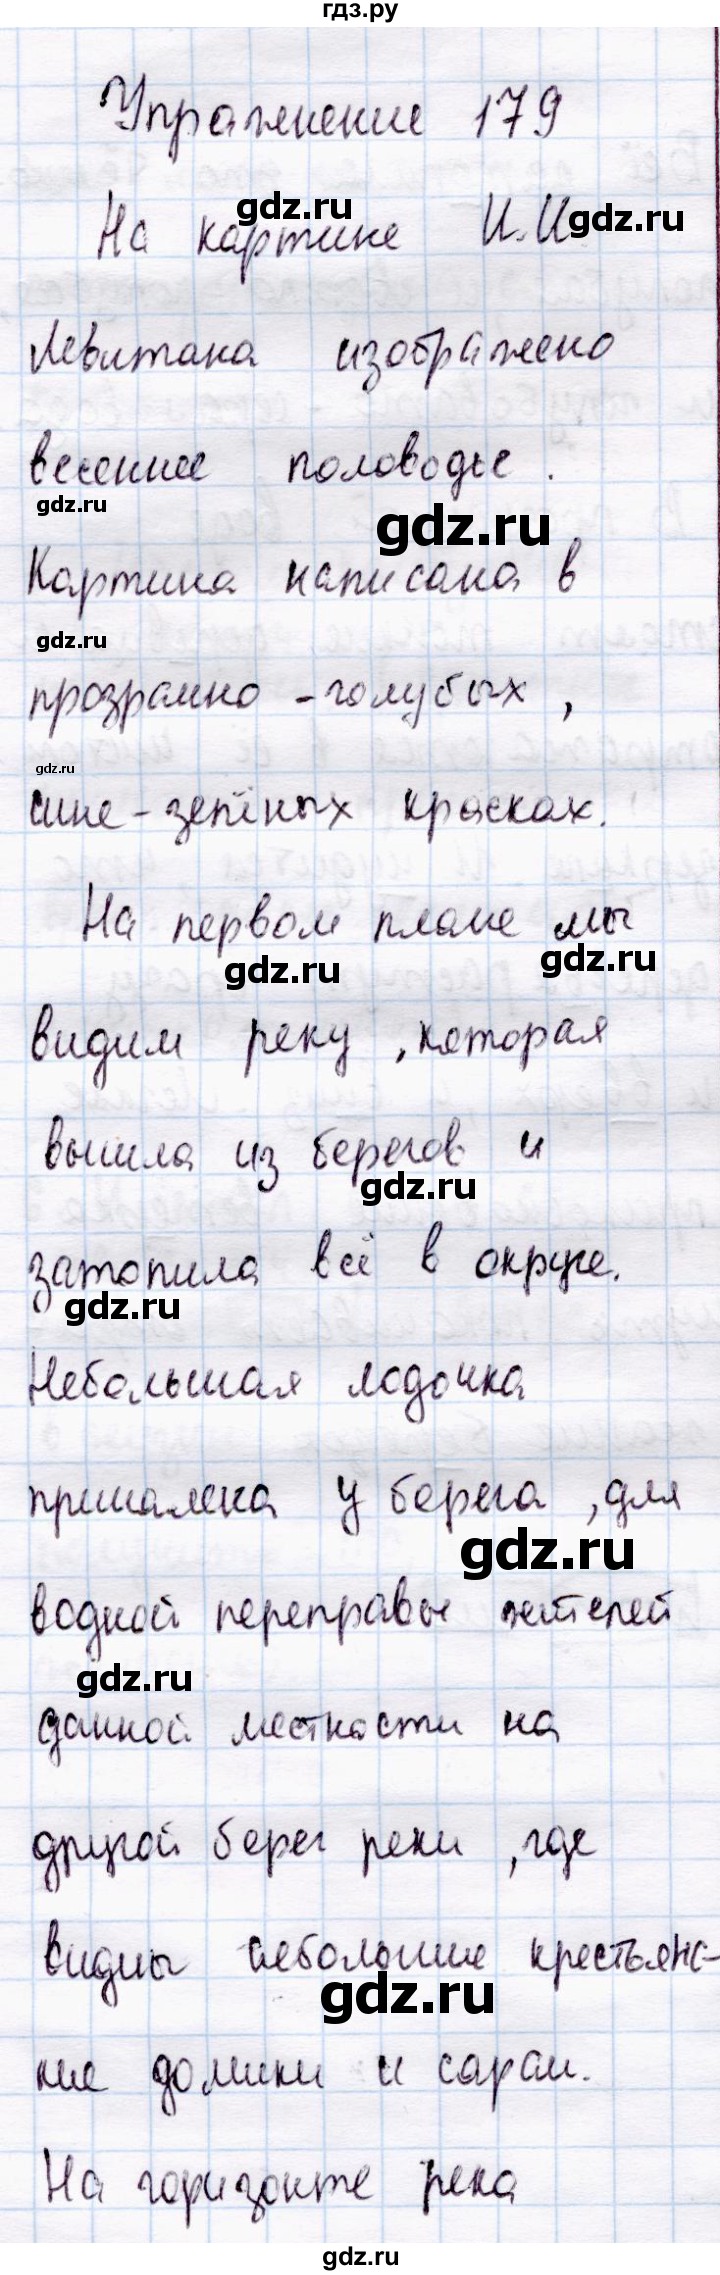 гдз.ру
Упражнение 179
gdz.ru
На картине И.И.
gdz.ru
Левитана изображено
весеннее половодье.
gdz.ru
gdz.ru
Картина написана в
gdz.ru
прозрачно-голубых,
gdz.ru
сине-зелёных красках.
На первом плане мы
gdz.ru
gdz.ru
видим реку, которая
вышла из берегов и
gdz.ru
затопила всё в округе.
gdz.ru
Небольшая лодочка
пришалена у берега, для
gdz.ru
водной переправы жителей
gdz.ru
данной местности на
другой берег реки, где
видны небольшие крестьянс-
gdz.ru
кие домики и сараи.
На горизонте река
gdz.ru